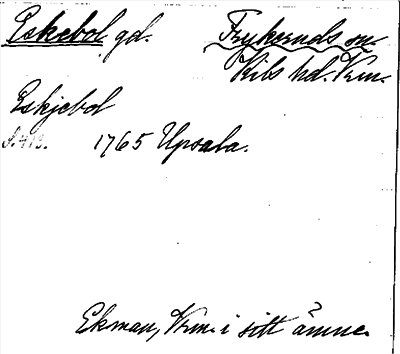 Eskebol gd. Frykeruds sn
Kils hd. Vrm.
Eskjebol
S. 413. 1765 Upsala.
Ekman, Vrm. i sitt ämne.